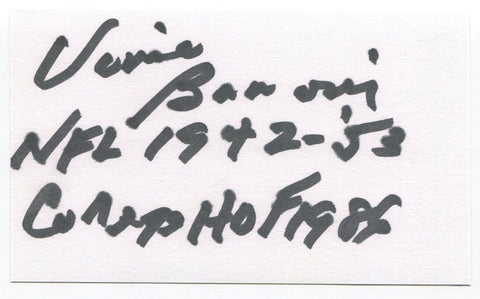 Vince
Banonis
NFL 1942-'53
College HOF 1986